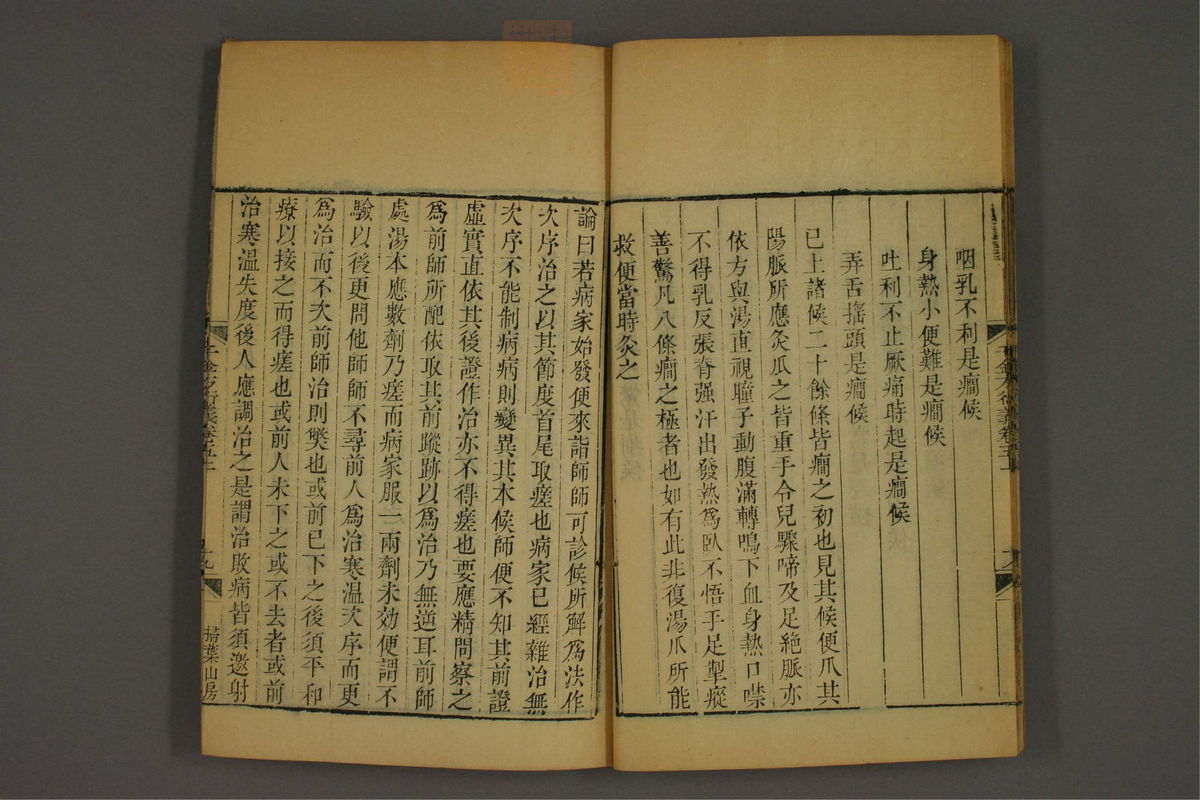 咽乳不利是癎候
身熱小便難是癎候
吐利不止厥痛時起是癎候
弄舌搖頭是癎候
已上諸候二十餘條皆癎之初也見其候便爪其
陽脈所應灸爪之皆重手令兒驟啼及足絶脈亦
依方與湯直視瞳子動腹滿轉鳴下血身熱口噤
不得乳反張脊强汗出發熱爲臥不悟手足掣瘲
善驚凡八條癎之極者也如有此非復湯爪所能
救便當時灸之
論曰若病家始發便來詣師師可診候所解爲法作
次序治之以其節度首尾取瘥也病家已經雜治無
次序不能制病病則變異其本候師便不知其前證
虛實直依其後證作治亦不得瘥也要應精問察之
爲前師所配依取其前蹤跡以爲治乃無逆耳前師
處湯本應數劑乃瘥而病家服一兩劑未効便謂不
驗以後更問他師師不尋前人爲治寒溫次序而更
爲治而不次前師治則獘也或前已下之後須平和
療以接之而得瘥也或前人未下之或不去者或前
治寒溫失度後人應調治之是謂治敗病皆須邀射
千金方衍義卷五上
九
掃葉山房